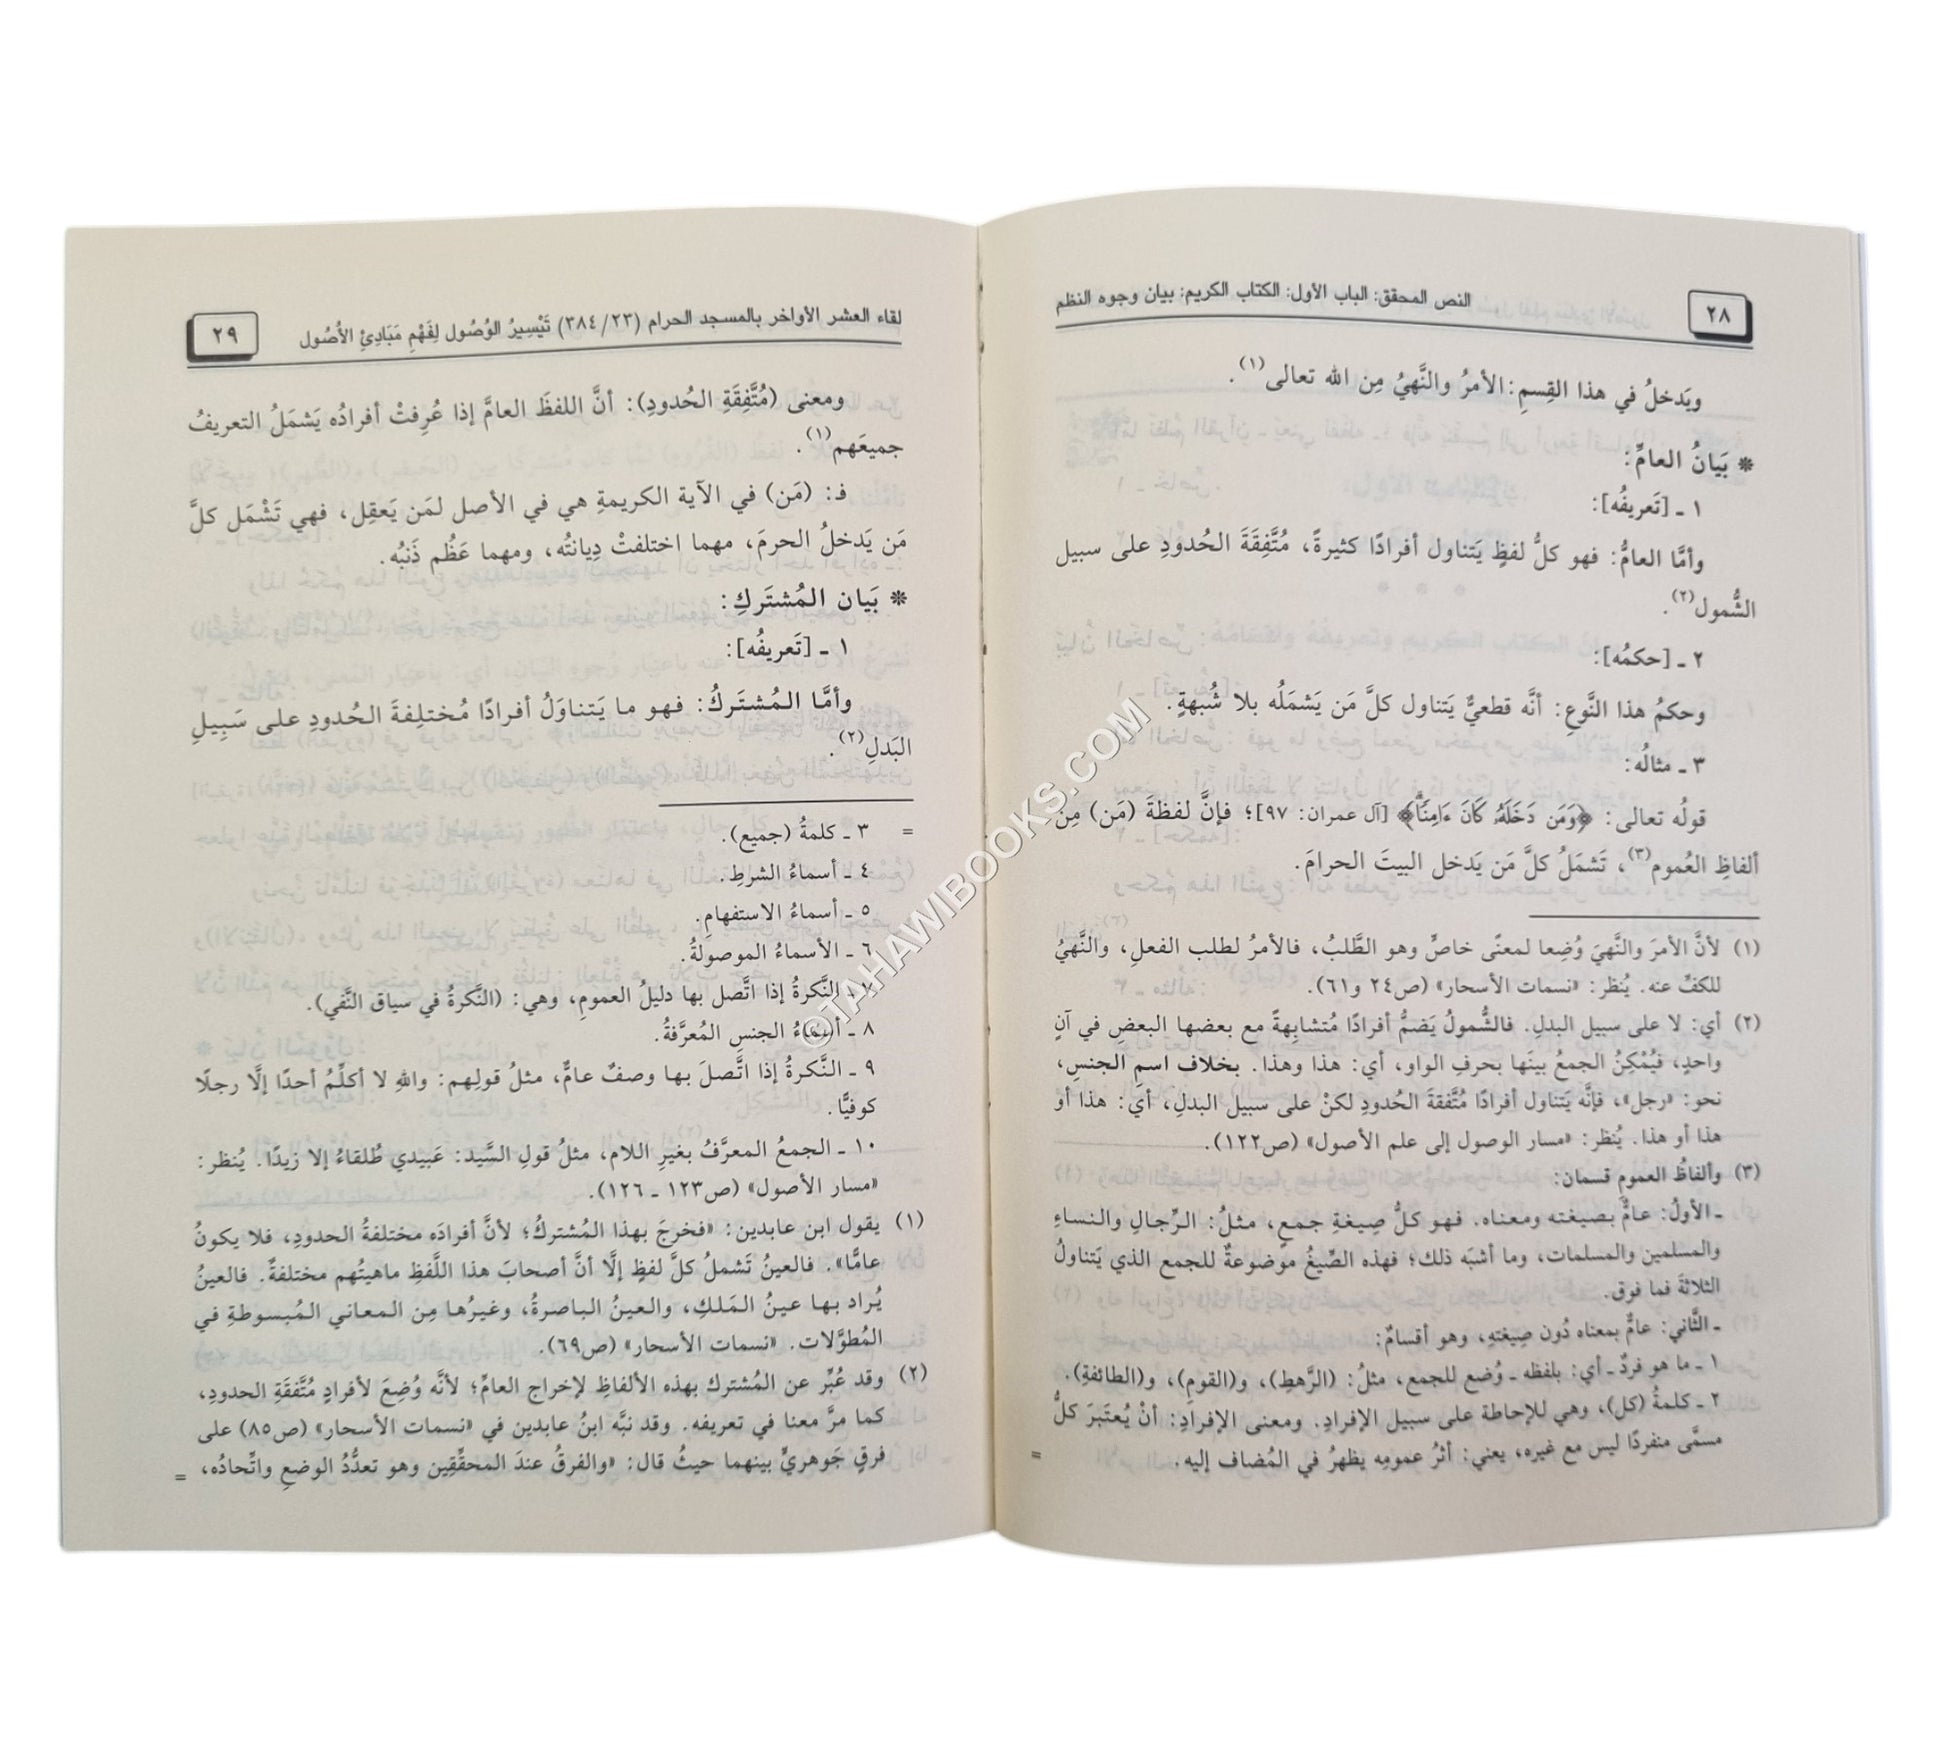 ٢٨
النص المحقق: الباب الأول: الكتاب الكريم: بيان وجوه النظم
ويَدخلُ في هذا القِسمِ: الأمرُ والنَّهيُ مِن الله تعالى(١).
❋ بَيانُ العامِّ:
١ ـ [تَعريفُه]:
وأمَّا العامُّ: فهو كلُّ لفظٍ يَتناول أفرادًا كثيرةً، مُتَّفِقَةَ الحُدودِ على سبيل
الشُّمول(٢).
٢ ـ [حكمُه]:
وحكمُ هذا النَّوعِ: أنَّه قطعيٌّ يَتناول كلَّ مَن يَشمَلُه بلا شُبهةٍ.
٣ ـ مثالُه:
قولُه تعالى: ﴿وَمَن دَخَلَهُۥ كَانَ ءَامِنًاۗ﴾ [آل عمران: ٩٧]؛ فإنَّ لفظةَ (مَن) مِنْ
ألفاظِ العُموم(٣)، تَشمَلُ كلَّ مَن يَدخل البيتَ الحرامَ.
(١) لأنَّ الأمرَ والنَّهيَ وُضِعا لمعنًى خاصٍّ وهو الطَّلبُ، فالأمرُ لطلب الفعلِ، والنَّهيُ
للكفِّ عنه. يُنظر: «نسمات الأسحار» (ص٢٤ و٦١).
(٢) أي: لا على سبيل البدلِ. فالشُّمولُ يَضمُّ أفرادًا مُتشابِهةً مع بعضها البعضِ في آنٍ
واحدٍ، فيُمْكِنُ الجمعُ بينَها بحرفِ الواو، أي: هذا وهذا. بخلاف اسمِ الجنسِ،
نحو: «رجل»، فإنَّه يَتناول أفرادًا مُتَّفقةَ الحُدودِ لكنْ على سبيل البدلِ، أي: هذا أو
هذا أو هذا. يُنظر: «مسار الوصول إلى علم الأصول» (ص١٢٢).
(٣) وألفاظُ العمومِ قسمان:
ـ الأولُ: عامٌّ بصيغته ومعناه. فهو كلُّ صِيغةِ جمعٍ، مثلُ: الرِّجالِ والنساءِ
والمسلمين والمسلمات، وما أشبَه ذلك؛ فهذه الصِّيغُ موضوعةٌ للجمع الذي يَتناولُ
الثلاثةَ فما فوق.
ـ الثَّاني: عامٌّ بمعناه دُون صِيغتِهِ، وهو أقسامٌ:
١ ـ ما هو فردٌ ـ أي: بلفظه ـ وُضع للجمع، مثلُ: (الرَّهطِ)، و(القومِ)، و(الطائفةِ).
٢ ـ كلمةُ (كل)، وهي للإحاطة على سبيل الإفرادِ. ومعنى الإفرادِ: أنْ يُعتَبَرَ كلُّ
مسمًّى منفردًا ليس مع غيره، يعني: أثرُ عمومِه يظهرُ في المُضاف إليه. =
لقاء العشر الأواخر بالمسجد الحرام (٣٨٤/٢٣) تَيْسِيرُ الوُصُول لِفَهْمِ مَبَادِئِ الأُصُول
٢٩
ومعنى (مُتَّفِقَةِ الحُدودِ): أنَّ اللفظَ العامَّ إذا عُرِفتْ أفرادُه يَشمَلُ التعريفُ
جميعَهم(١).
فـ: (مَن) في الآية الكريمةِ هي في الأصل لمَن يَعقِل، فهي تَشْمَل كلَّ
مَن يَدخلُ الحرمَ، مهما اختلفتْ دِيانتُه، ومهما عَظُم ذَنبُه.
❋ بَيان المُشتَركِ:
١ ـ [تَعريفُه]:
وأمَّا المُشتَركُ: فهو ما يَتناوَلُ أفرادًا مُختلِفةَ الحُدودِ على سَبِيلِ
البَدلِ(٢).
= ٣ ـ كلمةُ (جميع).
٤ ـ أسماءُ الشرطِ.
٥ ـ أسماءُ الاستفهامِ.
٦ ـ الأسماءُ الموصولةُ.
٧ ـ النَّكرةُ إذا اتَّصل بها دليلُ العمومِ، وهي: (النَّكرةُ في سياق النَّفي).
٨ ـ أسماءُ الجنس المُعرَّفةُ.
٩ ـ النَّكرةُ إذا اتَّصلَ بها وصفٌ عامٌّ، مثلُ قولِهم: واللهِ لا أكلِّمُ أحدًا إلَّا رجلًا
كوفيًّا.
١٠ ـ الجمعُ المعرَّفُ بغيرِ اللام، مثلُ قولِ السَّيد: عَبيدي طُلقاءُ إلا زيدًا. يُنظر:
«مسار الأصول» (ص١٢٣ ـ ١٢٦).
(١) يقول ابن عابدين: «فخرجَ بهذا المُشتركُ؛ لأنَّ أفرادَه مختلفةُ الحدودِ، فلا يكونُ
عامًّا». فالعينُ تَشملُ كلَّ لفظٍ إلَّا أنَّ أصحابَ هذا اللَّفظِ ماهيتُهم مختلفةٌ. فالعينُ
يُراد بها عينُ المَلكِ، والعينُ الباصرةُ، وغيرُها مِن المعاني المُبسوطةِ في
المُطوَّلات. «نسمات الأسحار» (ص٦٩).
(٢) وقد عُبِّر عن المُشترك بهذه الألفاظِ لإخراج العامِّ؛ لأنَّه وُضِعَ لأفرادٍ مُتَّفِقَةِ الحدودِ،
كما مرَّ معنا في تعريفه. وقد نبَّه ابنُ عابدين في «نسمات الأسحار» (ص٨٥) على
فرقٍ جَوهريٍّ بينهما حيثُ قال: «والفرقُ عندَ المحقِّقِين وهو تعدُّدُ الوضعِ واتِّحادُه، =
©TAHAWIBOOKS.COM